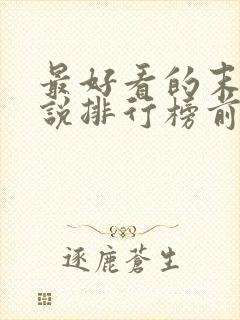 最好看的末
说排行榜前
逐鹿苍生